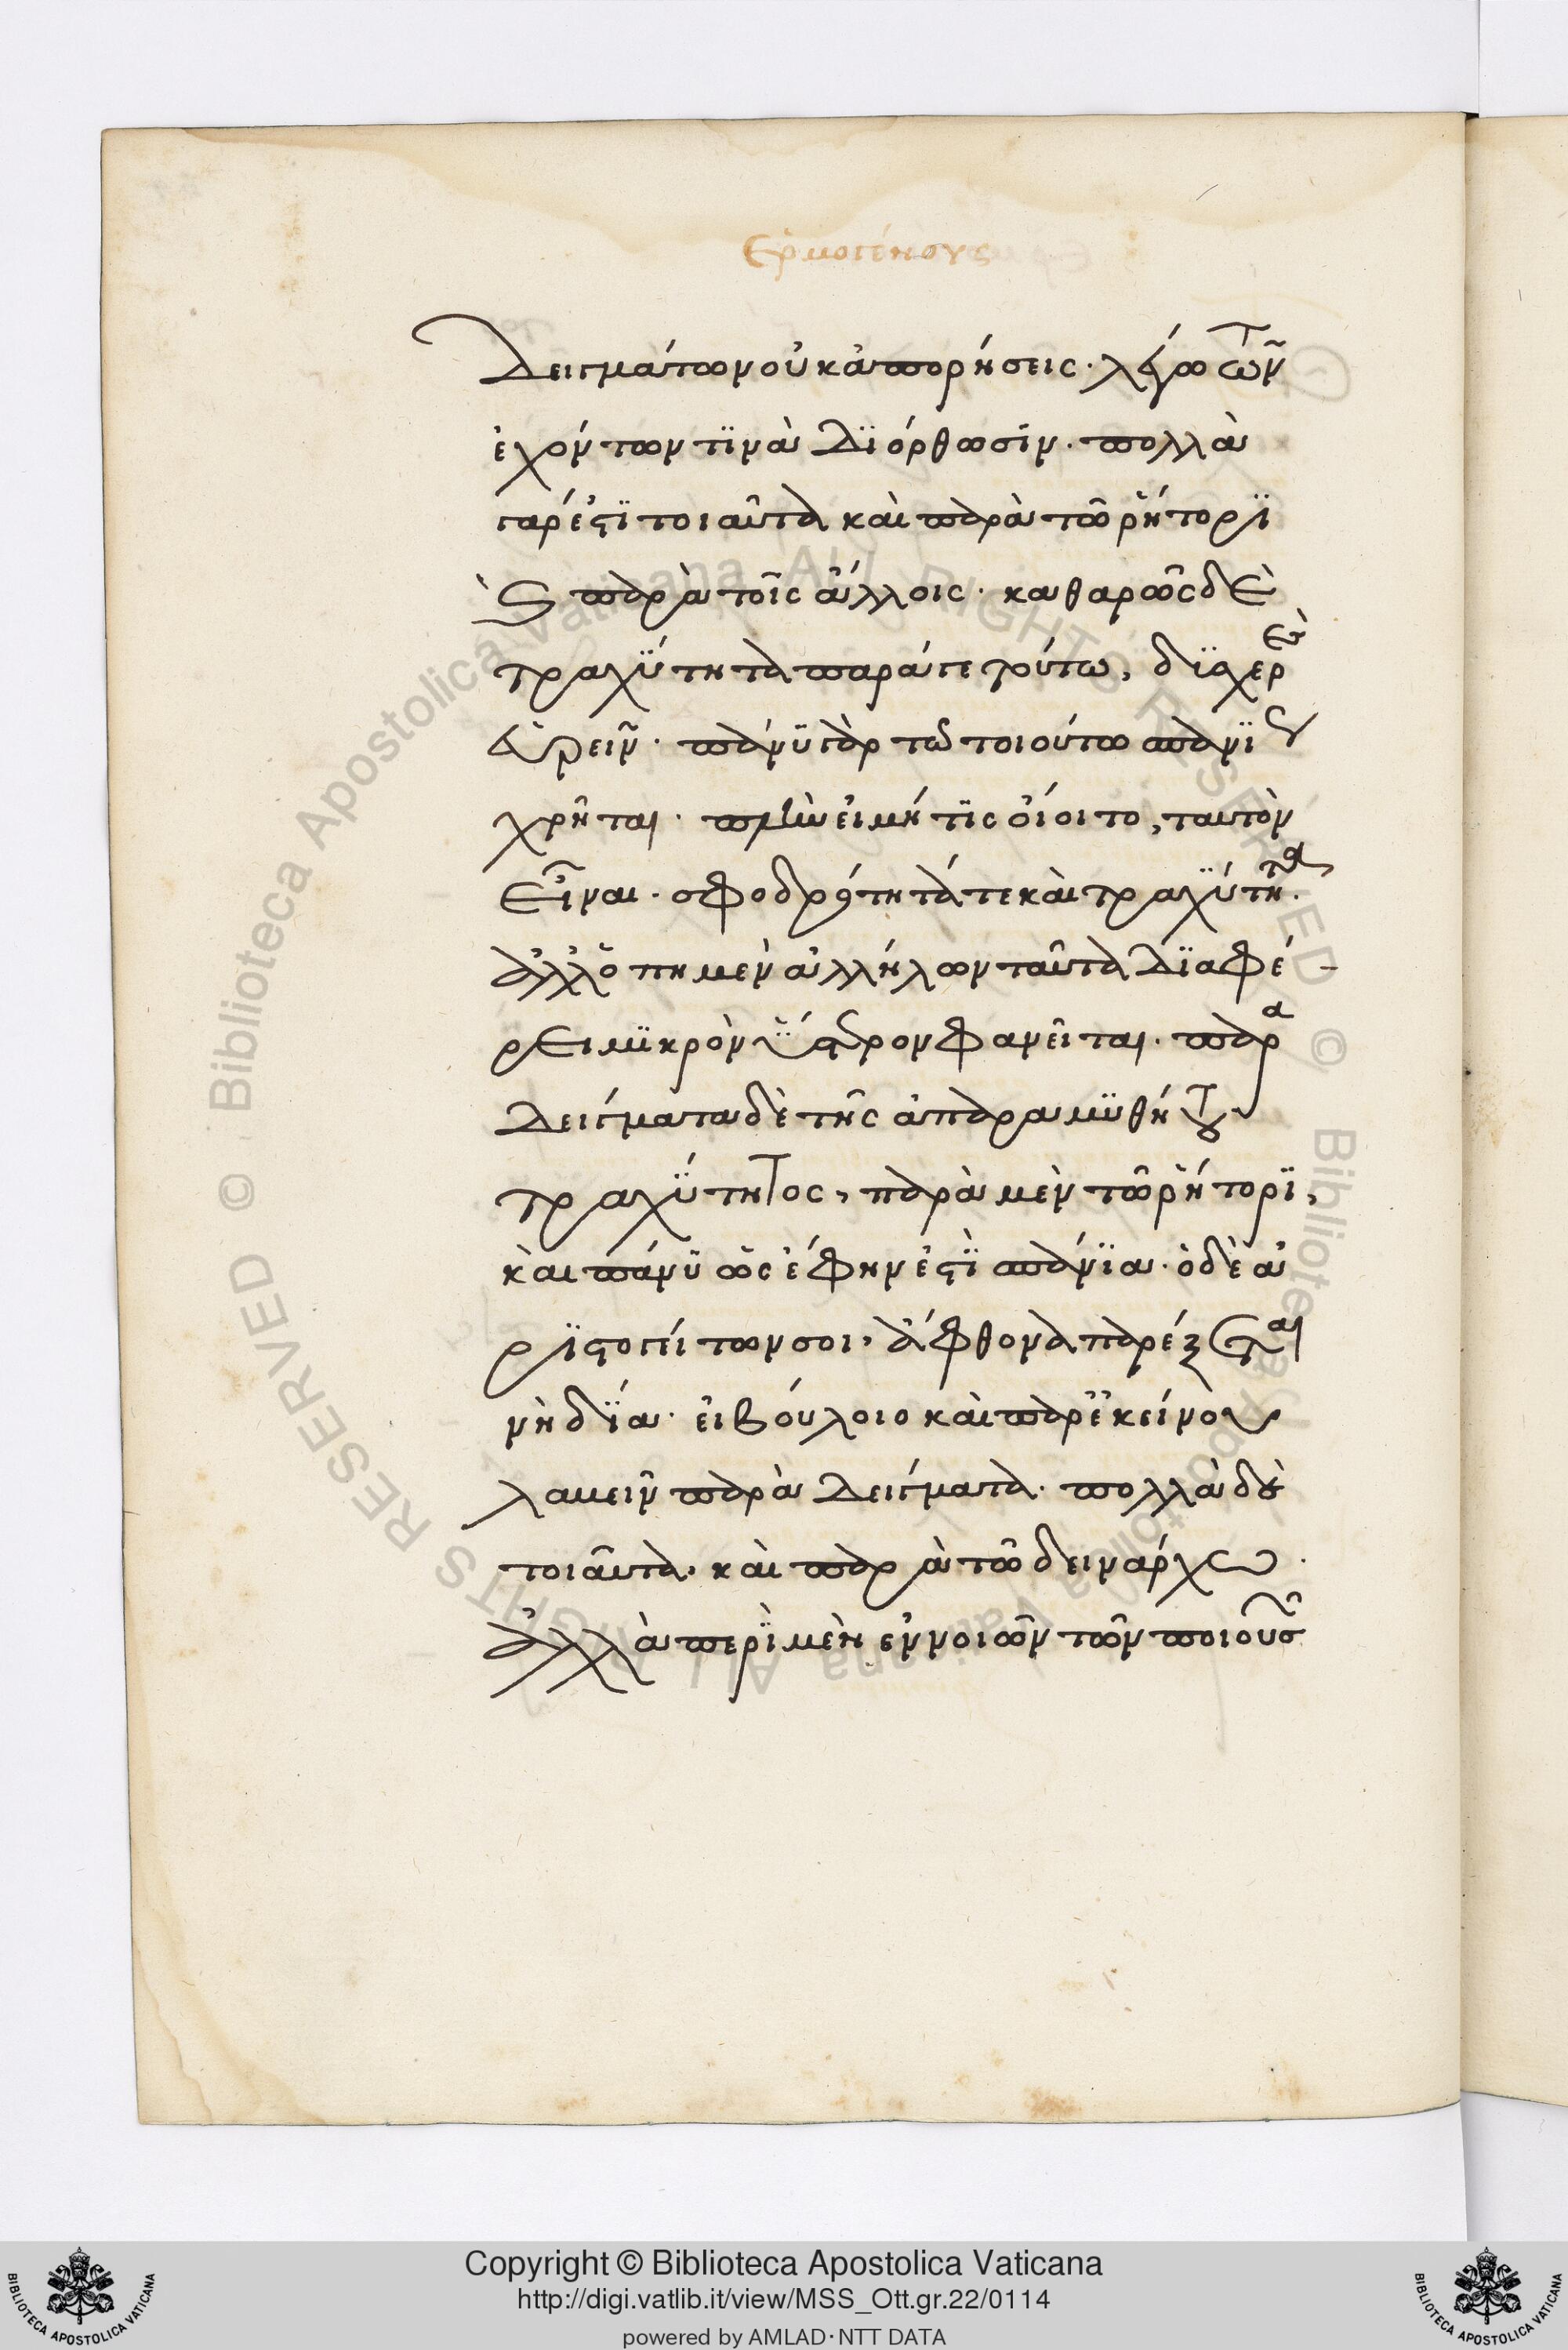 Ἑρμογένους
δειγμάτων οὐκ ἀπορήσεις· λέγω τῶν
ἐχόντων τινὰ διόρθωσιν· πολλὰ
γάρ ἐστι τοιαῦτα καὶ παρὰ τῷ ῥήτορι
καὶ παρὰ τοῖς ἄλλοις· καθαρῶς δὲ
τραχύτητα παρά γε τούτω, δυσχερὲς
εὑρεῖν· πάνυ γὰρ τῶ τοιούτω σπανίως
χρῆται· πλὴν εἰ μή τις οἴοιτο, ταυτὸν
εἶναι· σφοδρότητά τε καὶ τραχύτητα·
ἀλλ' ὅπη μὲν ἀλλήλων ταῦτα διαφέ-
ρει μικρὸν ὕστερον φανεῖται· παρα
δείγματα δὲ τῆς ἀπαραμυθήτου
τραχύτητος, παρὰ μὲν τῷ ῥήτορι,
καὶ πάνυ ὡς ἔφην ἐστὶ σπάνια· ὁ δὲ ἀ
ριστογείτων σοι, ἄφθονα παρέξεται
νὴ δία· εἰ βούλοιο καὶ παρ' ἐκείνου
λαβεῖν παραδείγματα· πολλὰ δὲ
τοιαῦτα, καὶ παρὰ τῷ δεινάρχω·
ἀλλὰ περὶ μὲν ἐννοιῶν τῶν ποιουσῶν
Copyright © Biblioteca Apostolica Vaticana
http://digi.vatlib.it/view/MSS_Ott.gr.22/0114
powered by AMLAD·NTT DATA
BIBLIOTECA APOSTOLICA VATICANA
BIBLIOTECA APOSTOLICA VATICANA
© Biblioteca Apostolica Vaticana ALL RIGHTS RESERVED
© Biblioteca Apostolica Vaticana ALL RIGHTS RESERVED